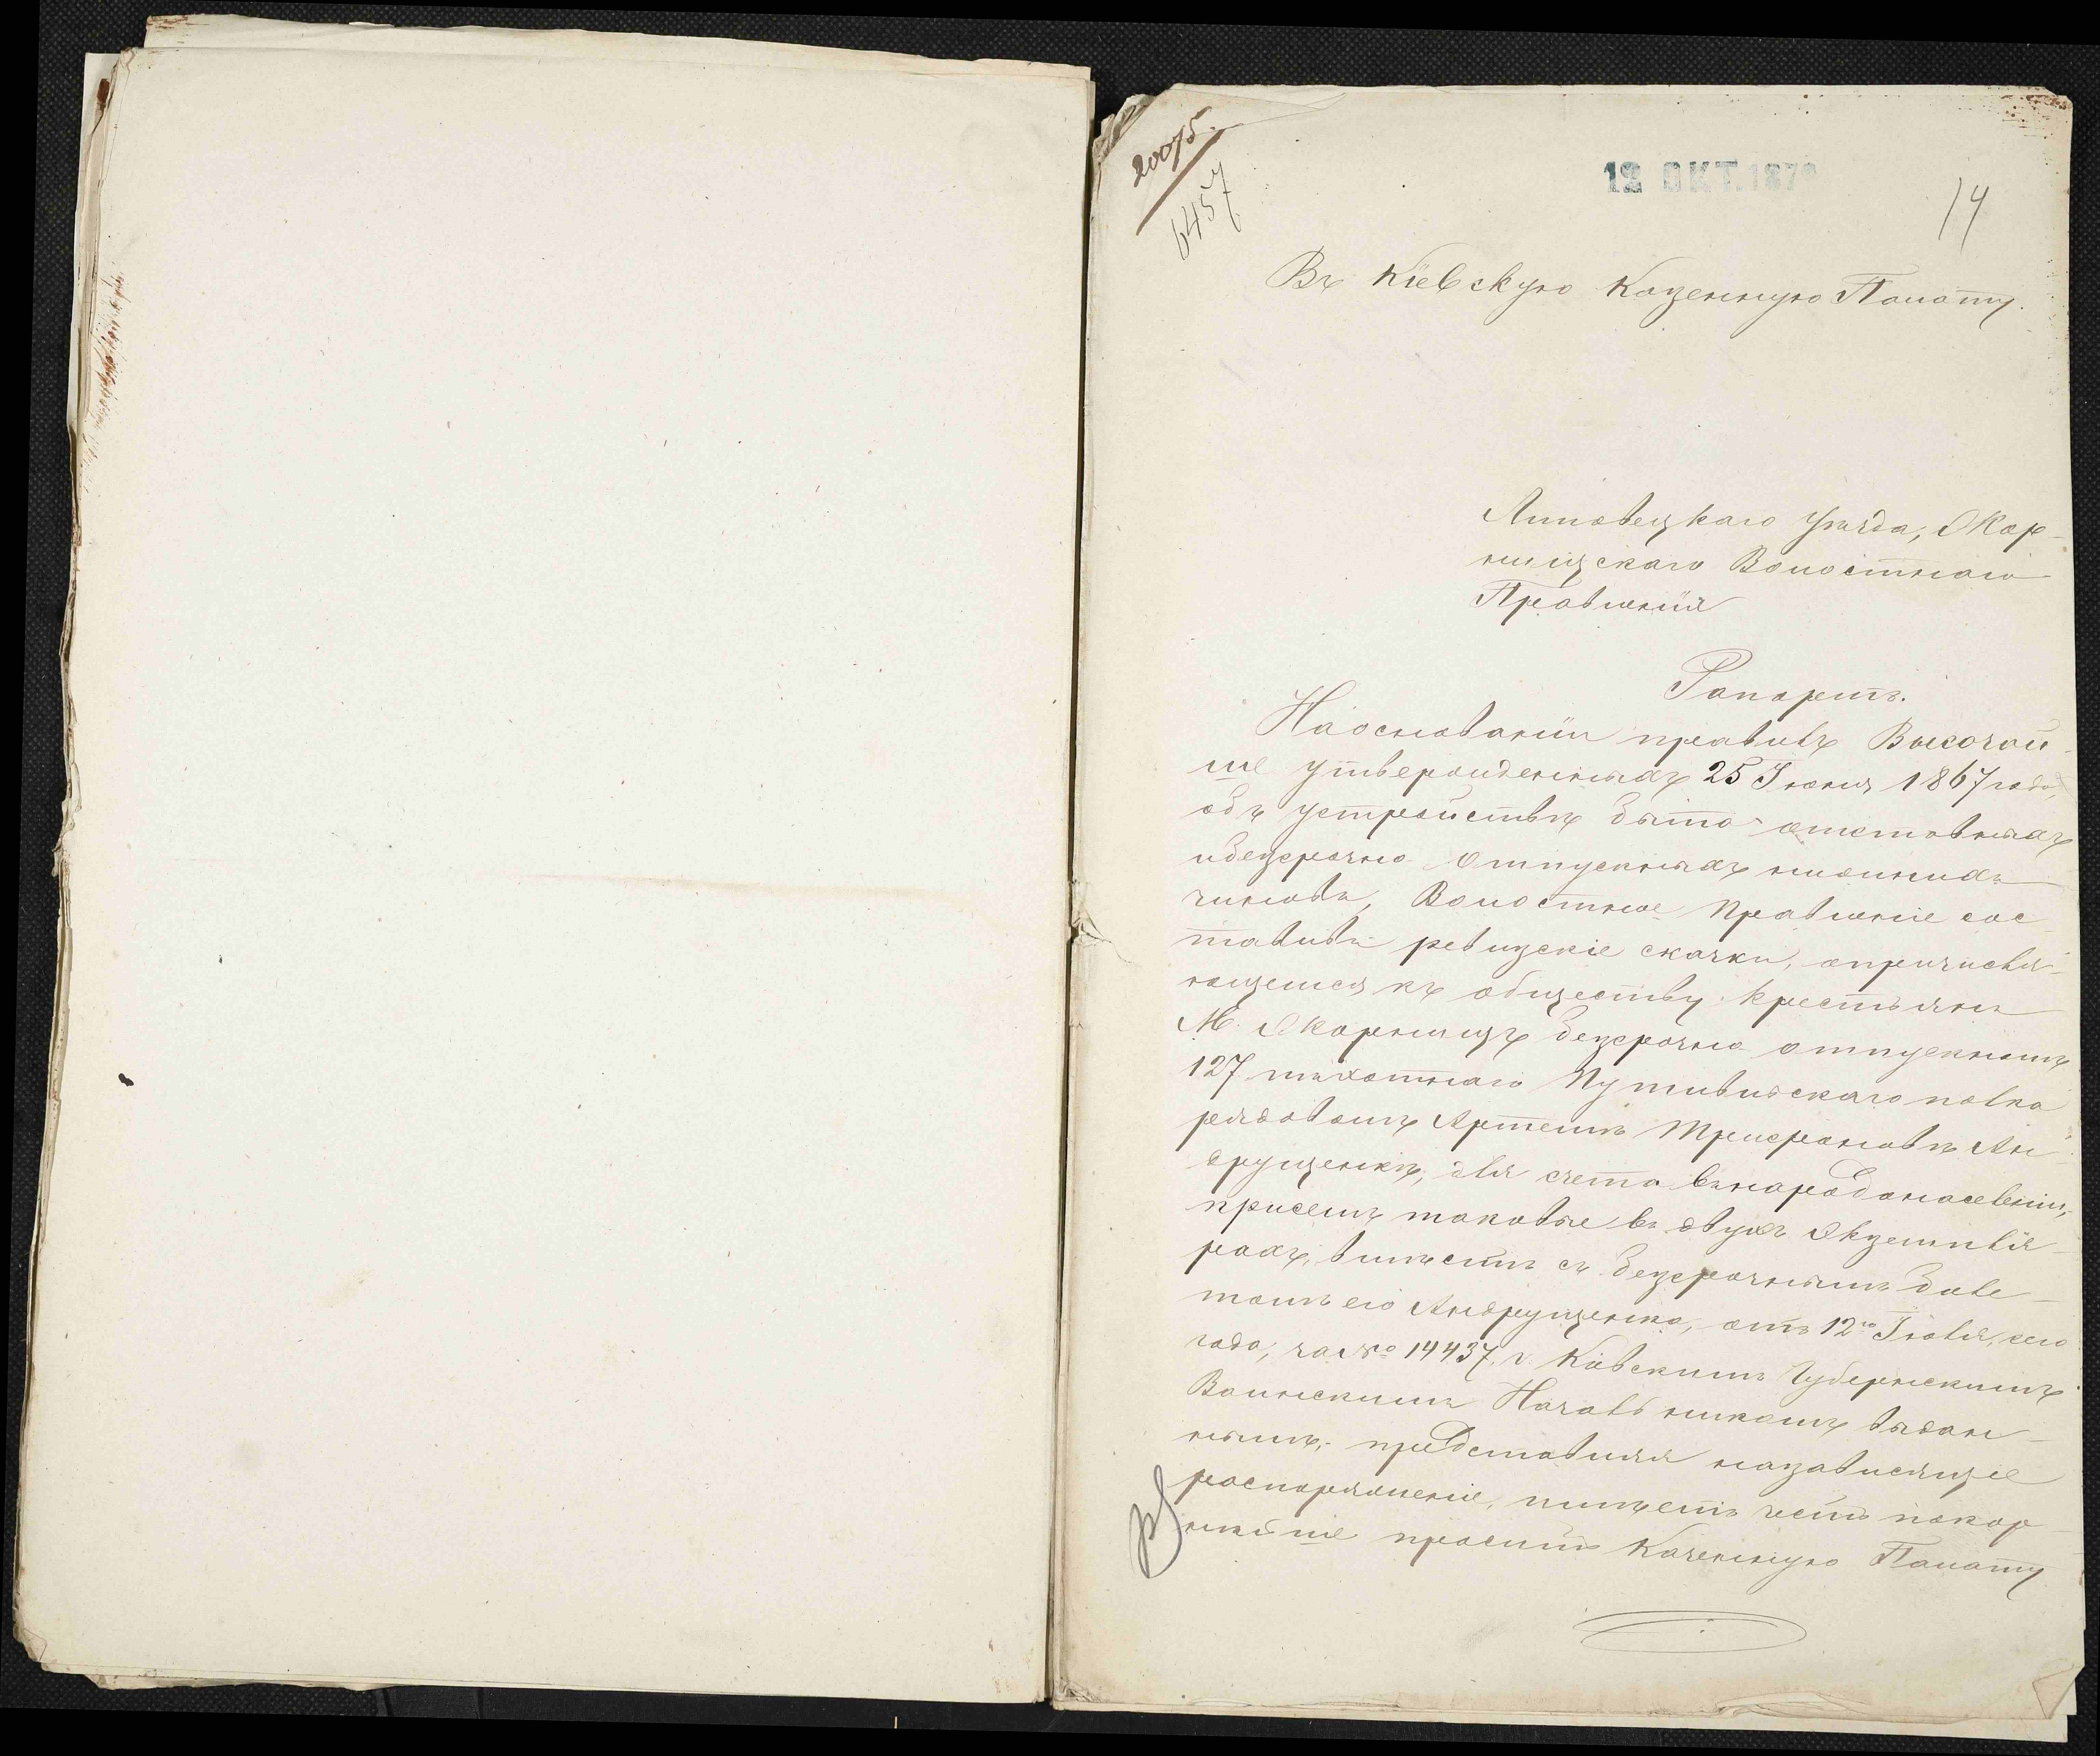 20075.
6457
12 ОКТ. 187
14
Въ Кіевскую Казенную Палату.
Липовецкаго Уѣзда, Жор-
нищскаго Волостнаго
Правленія
Рапортъ.
На основаніи правилъ Высочай-
ше утвержденныхъ 25 Іюня 1867 года,
объ устройствѣ быта отставныхъ
и безсрочно отпускныхъ нижнихъ
чиновъ, Волостное Правленіе сос-
тавивъ ревизскіе сказки, о причисля-
ющемся къ обществу крестьянъ
М. Жорнищъ безсрочно отпускномъ
127 пѣхотнаго Путивльскаго полка
рядовомъ Артемѣ Трифоновѣ Ан-
друщенкѣ, для счета въ народонаселеніи,
при семъ таковые въ двухъ экземпля-
рахъ, вмѣстѣ съ безсрочнымъ биле-
томъ его Андрущенка, отъ 12го Іюля, сего
года, за № 14437, Кіевскимъ Губернскимъ
Воинскимъ Начальникомъ выдан-
нымъ, представляя на зависящее
распоряженіе, имѣетъ честь покор-
нѣйше просить Казенную Палату